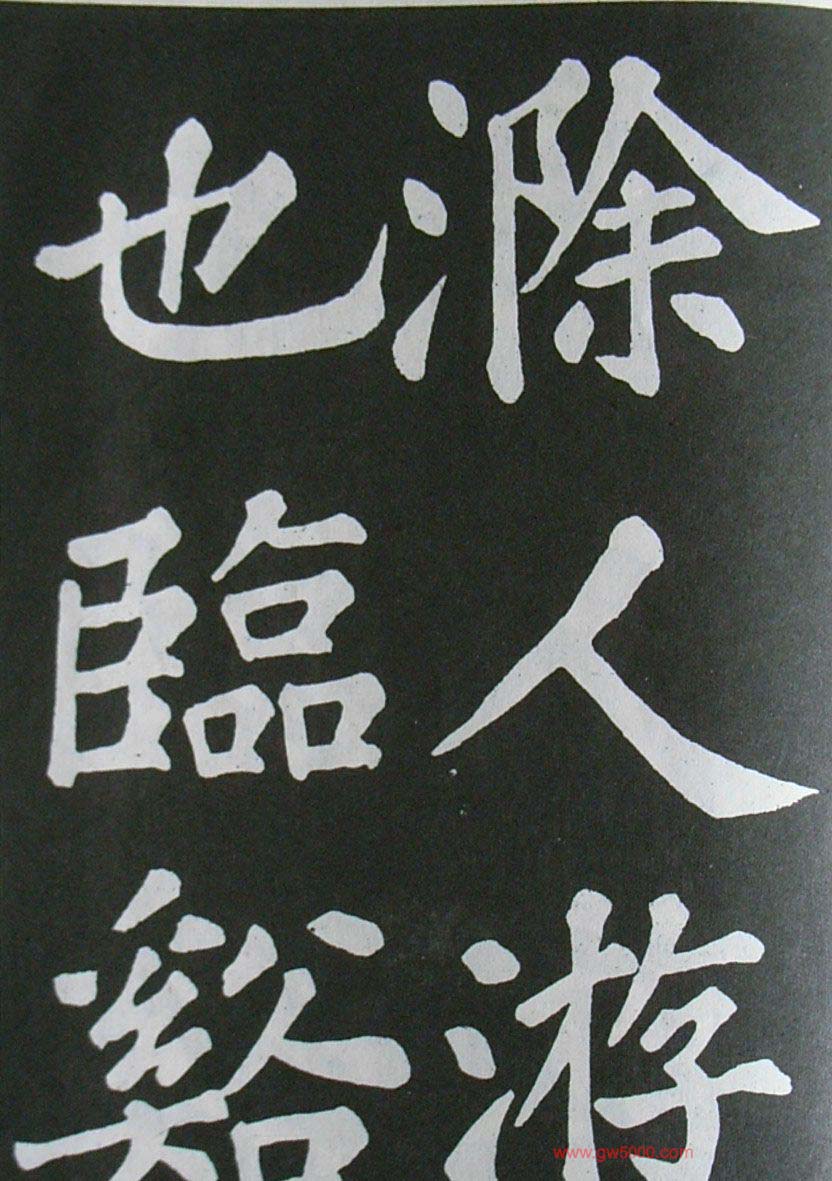 滁人游
也臨谿
www.gw5000.com